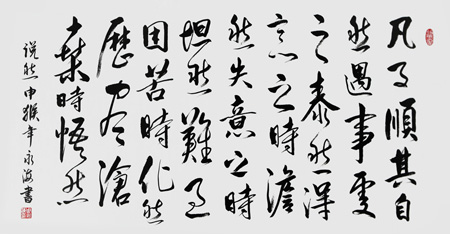 凡事順其自
然遇事處
之泰然得
意之時澹
然失意之時
坦然難
苦時化然
歷盡滄
桑時悟然
説然申猴年永海書